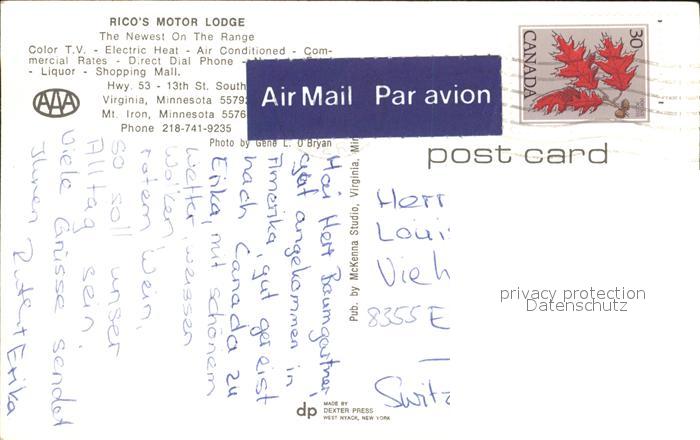 RICO'S MOTOR LODGE
The Newest On The Range
Color T.V. - Electric Heat - Air Conditioned - Com-
mercial Rates - Direct Dial Phone -
- Liquor - Shopping Mall.
Hwy. 53 - 13th St. South
Virginia, Minnesota 5579
Mt. Iron, Minnesota 5576
Phone 218-741-9235
Photo by Gene L. O'Bryan
AAA
Air Mail Par avion
CANADA
30
post card
Pub. by McKenna Studio, Virginia, Min
Hoi Herr Baumgartner,
gut angekommen in
Amerika, gut gereist
nach Canada zu
Erika, mit schönem
Wetter, weissen
Wolken,
rotem Wein,
so soll unser
Alltag sein.
Viele Grüsse sendet
Ihnen Erika
Herr
Loui
Vieh
8355 E
Switz
privacy protection
Datenschutz
dp
MADE BY
DEXTER PRESS
WEST NYACK, NEW YORK